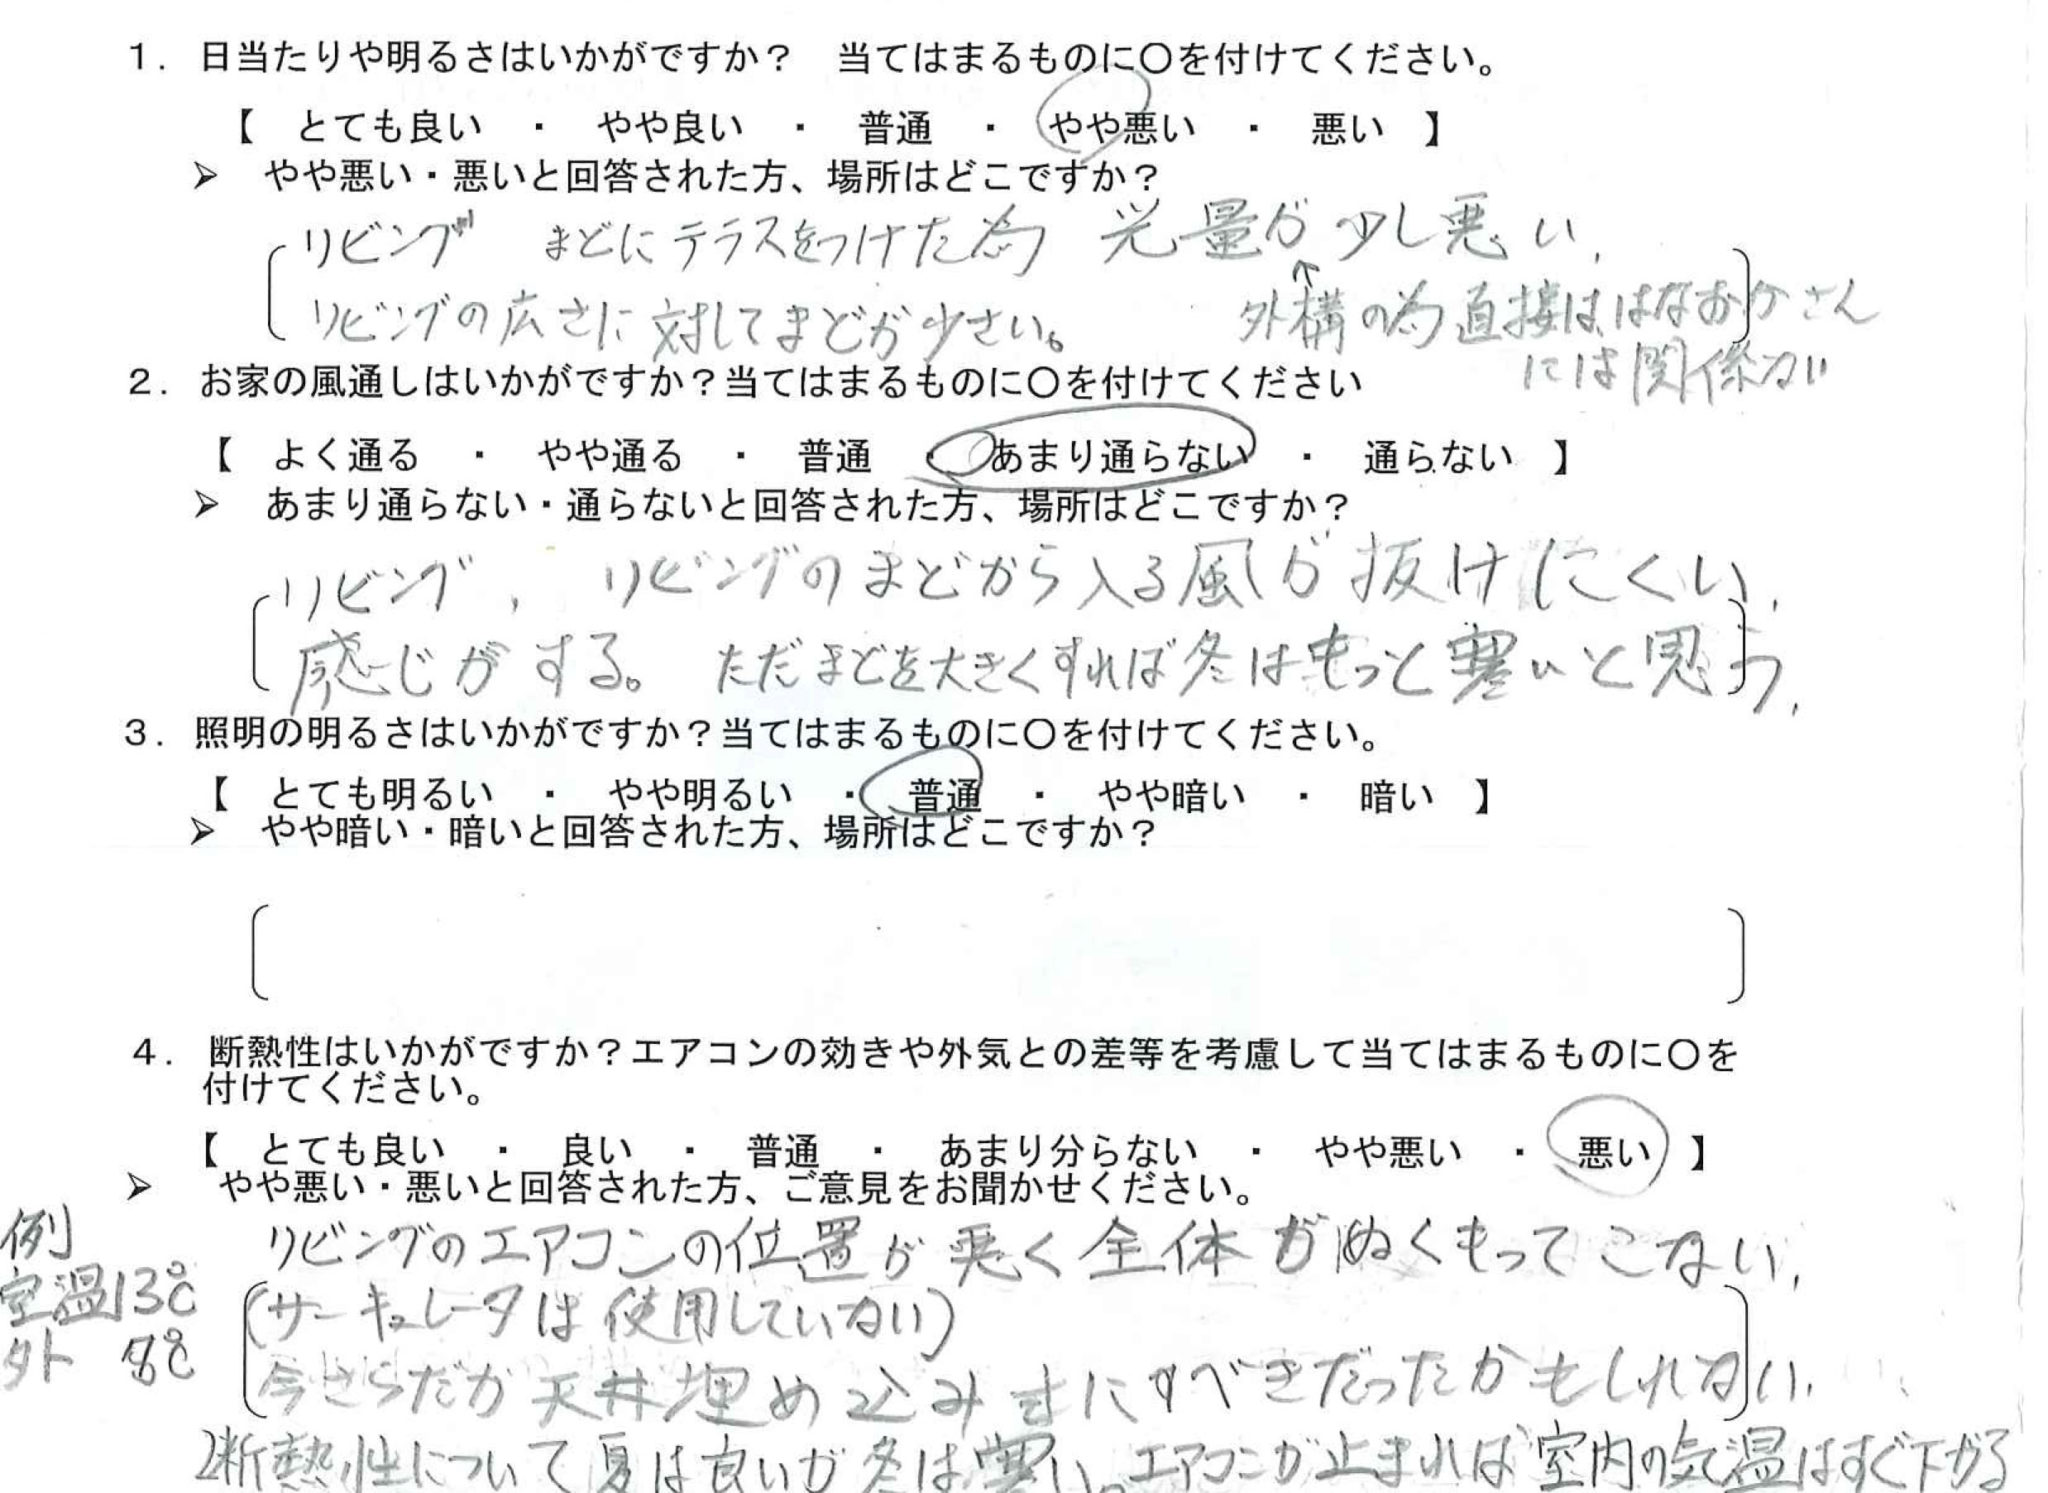 １．日当たりや明るさはいかがですか？　当てはまるものに〇を付けてください。
【　とても良い　・　やや良い　・　普通　・　やや悪い　・　悪い　】
➢　やや悪い・悪いと回答された方、場所はどこですか？
リビング　まどにテラスをつけた為　光量が少し悪い、
リビングの広さに対してまどが少さい。
↑
外構の為直接ははなおかさん
には関係ない
２．お家の風通しはいかがですか？当てはまるものに〇を付けてください
【　よく通る　・　やや通る　・　普通　・　あまり通らない　・　通らない　】
➢　あまり通らない・通らないと回答された方、場所はどこですか？
リビング、リビングのまどから入る風が抜けにくい、
感じがする。ただまどを大きくすれば冬はもっと寒いと思う、
３．照明の明るさはいかがですか？当てはまるものに〇を付けてください。
【　とても明るい　・　やや明るい　・　普通　・　やや暗い　・　暗い　】
➢　やや暗い・暗いと回答された方、場所はどこですか？
４．断熱性はいかがですか？エアコンの効きや外気との差等を考慮して当てはまるものに〇を
付けてください。
【　とても良い　・　良い　・　普通　・　あまり分らない　・　やや悪い　・　悪い　】
➢　やや悪い・悪いと回答された方、ご意見をお聞かせください。
例
室温13℃
外　8℃
リビングのエアコンの位置が悪く全体がぬくもってこない、
(サーキュレータは使用していない)
今さらだが天井埋め込み にすべきだったかもしれない、
断熱性について夏は良いが冬は寒い。エアコンが止まれば室内の気温はすぐ下がる